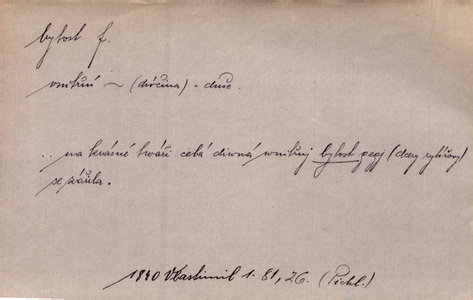 bytost f.
vnitřní ~ (dívčina) = duše.
.. na krásné tváři celá diwná wnitřnj bytost gegj (dcery rytířovy)
se zářila.
1840 Vlastimil 1. 81, 26. (Pichl.)